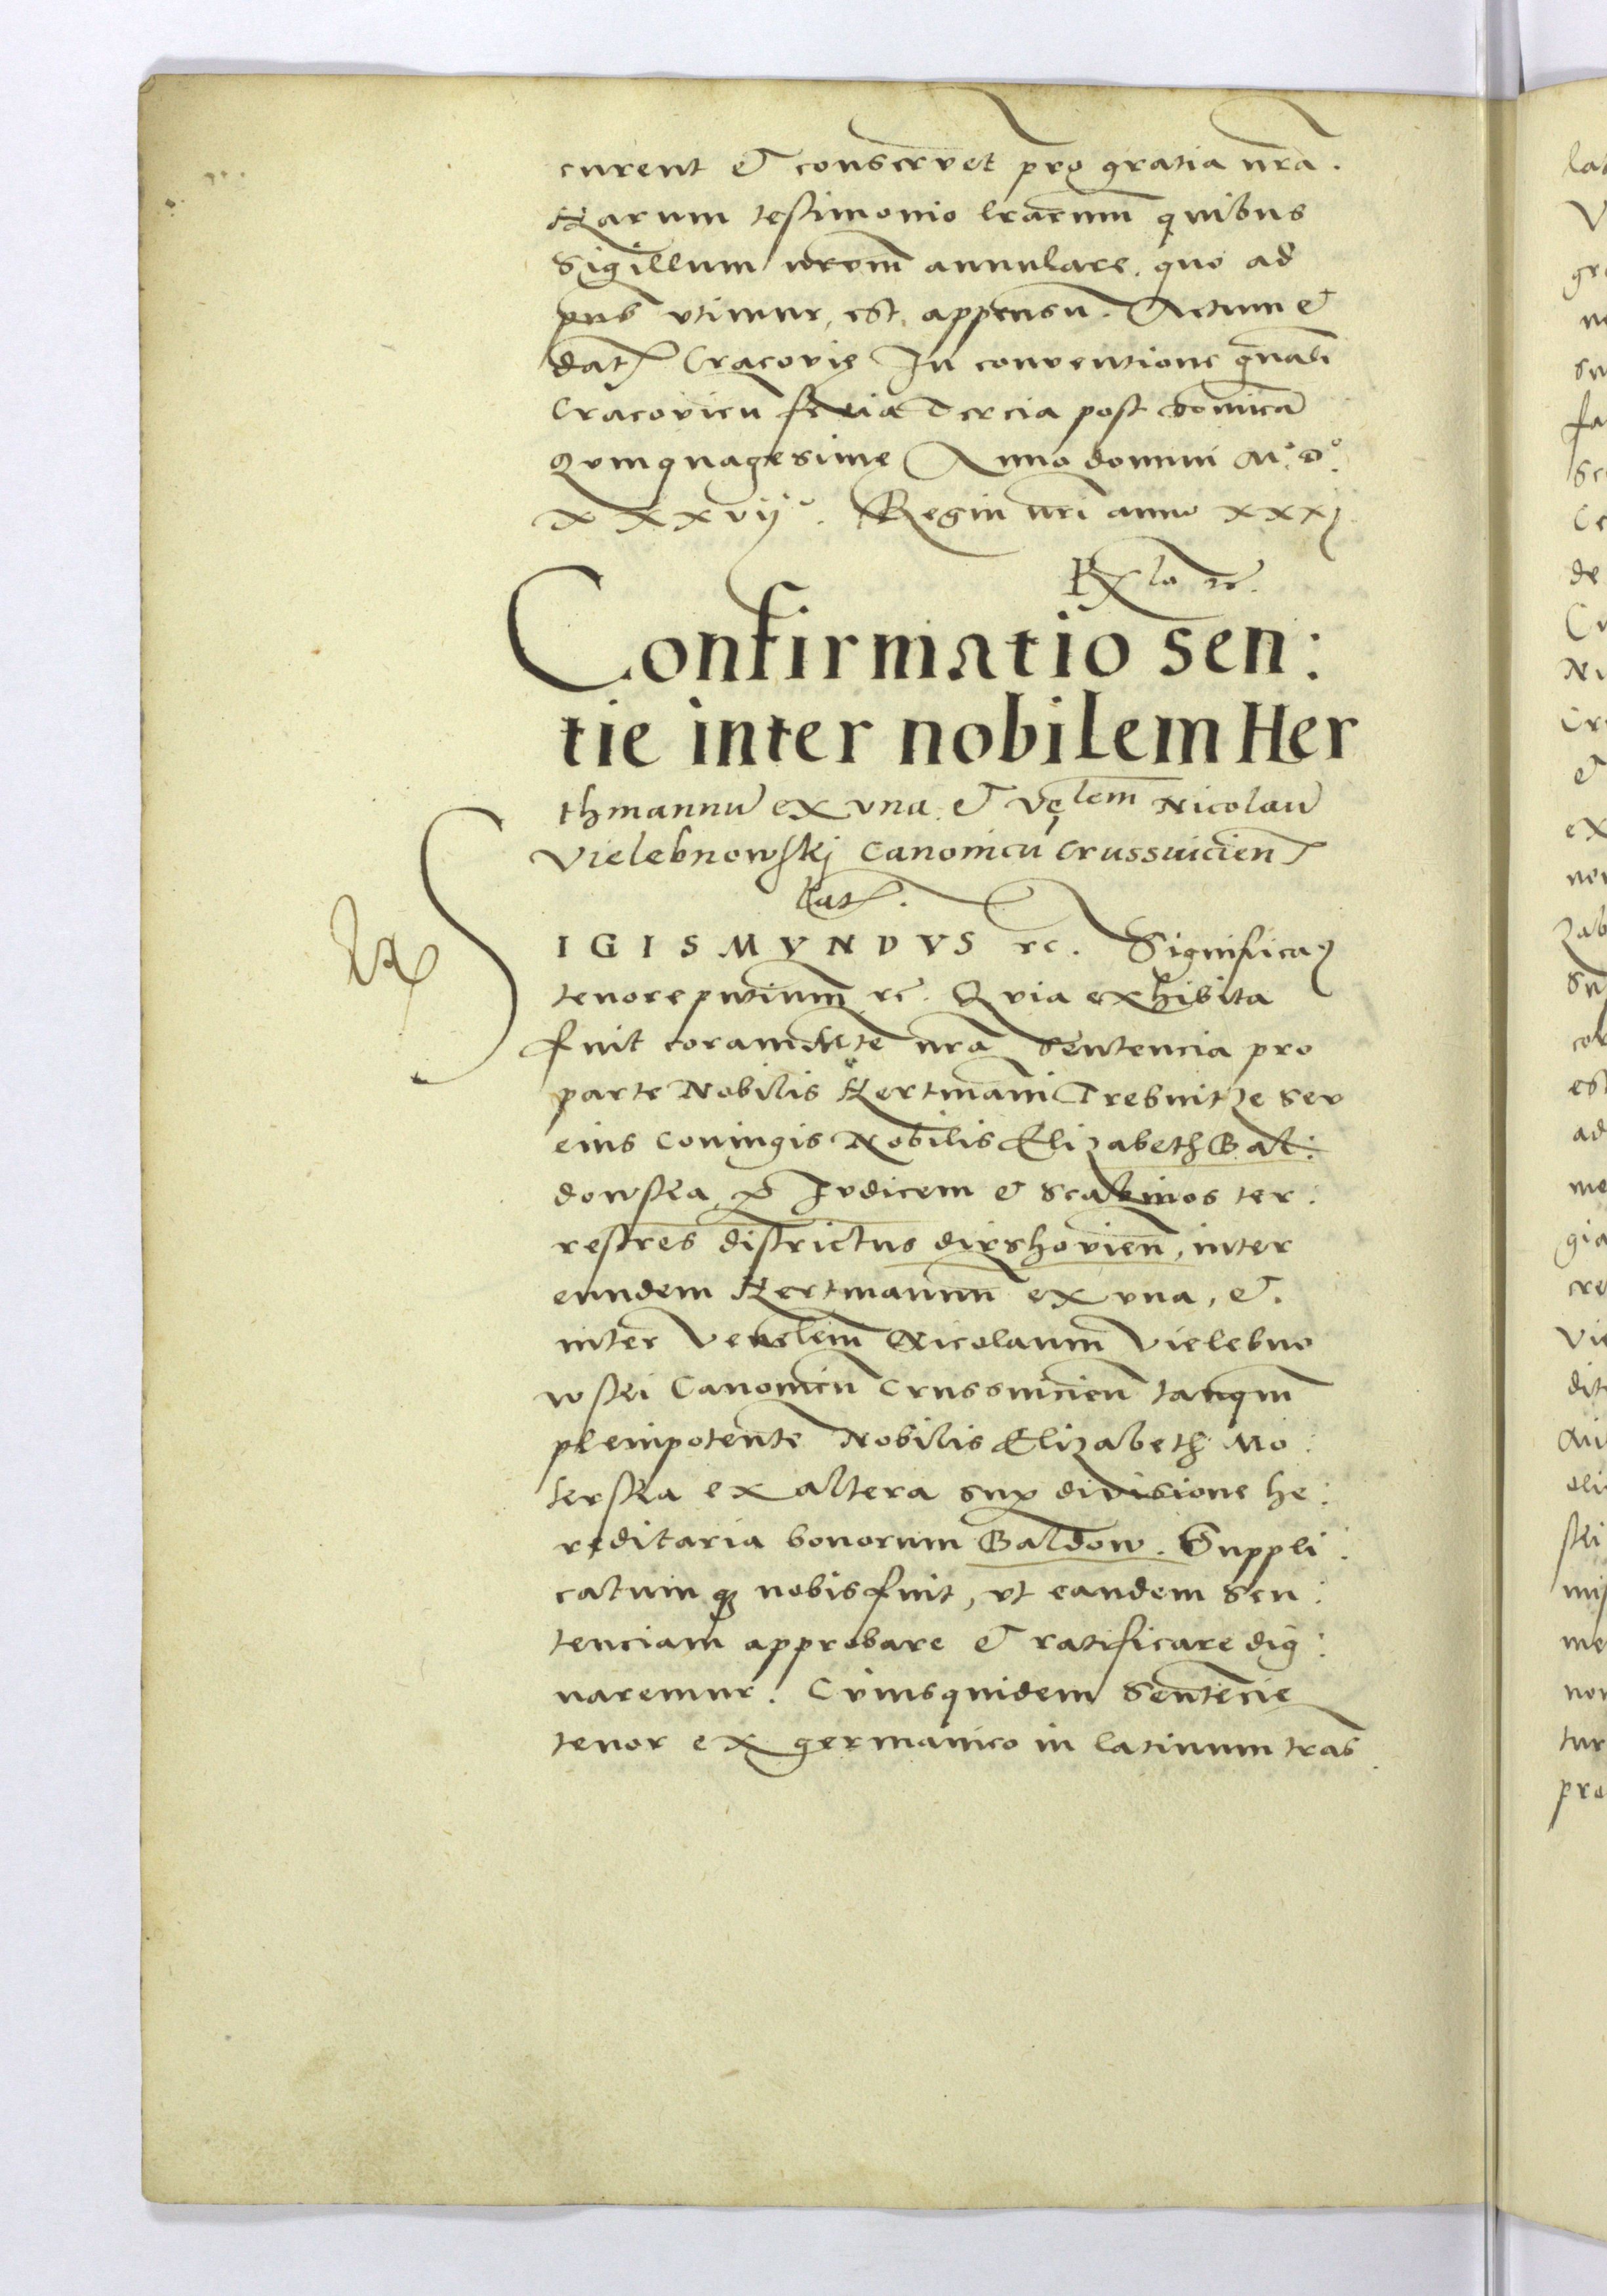 curent & conservet pro gratia nrã.
Harum testimonio lrarum quibus
Sigillum nrum annulare, quo ad
pns vtimur, est, appensũ. Actum &
dat Cracovię In conventione gnali
Cracovien feria Tercia post dominicã
Qvinquagesime Anno domini M° D°
xxxvij°. Regni nri anno xxxj
Rx la rc.
Confirmatio sen:
tie inter nobilem Her
thmannũ ex vna & Velem Nicolaũ
Vielebnowskj Canonicũ Crussuicien
Lat.
SIGISMVNDVS rc. Significaq
tenore pntium rc. Qvia exhibita
fuit coram Mte nrã Sentencia pro
parte Nobilis Hertmani Trebnitze seu
eius Coniugis Nobilis Elizabeth Bal:
dowska p Ivdicem & Scabinos ter:
restres districtus dirshovien, inter
eundem Hertmannũ ex vna, &
inter Venelem Nicolaum Vielebno
wski Canonicũ Crussuicien tanqm
plenipotente Nobilis Elizabeth Mo:
terska ex altera sup divisione he:
reditaria bonorum Baldow. Suppli:
catum q3 nobis fuit, vt eandem Sen:
tenciam approbare & ratificare dig:
naremur. Cvius quidem Sentẽcie
tenor ex germanico in latinum tras